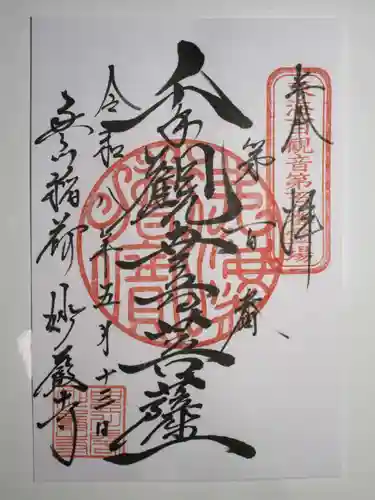 奉拝
東海百観音第百番霊場
第百番
千手觀世音菩薩
令和八年五月十三日
豊川稲荷 妙嚴寺